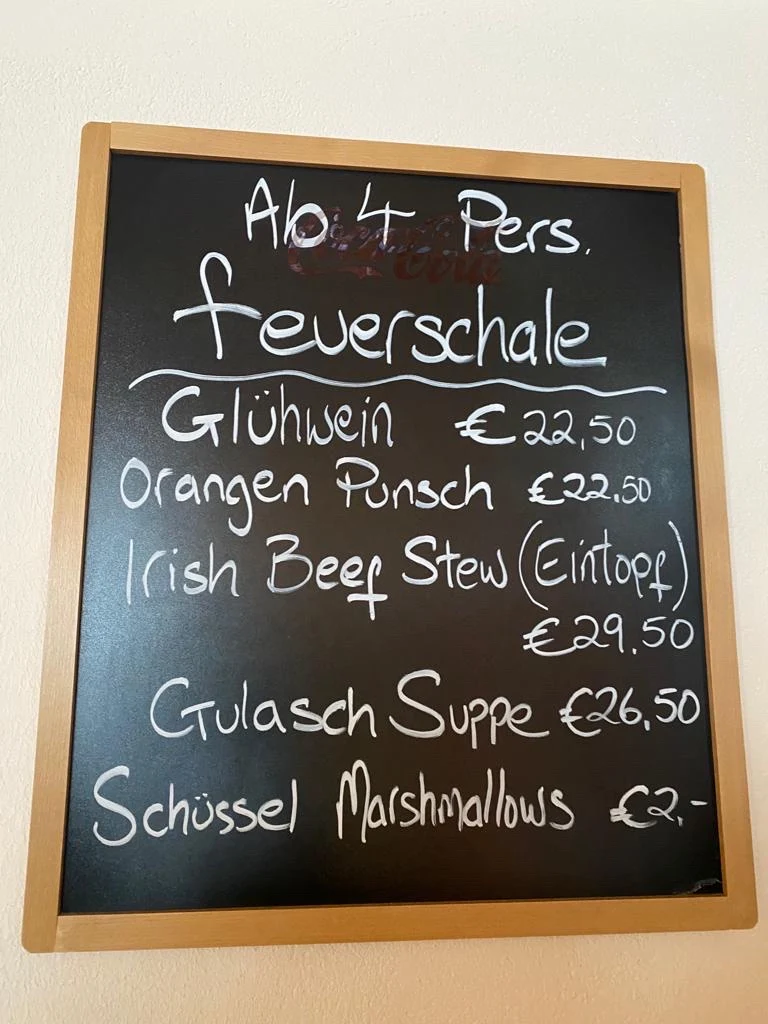 Ab 4 Pers.
Coca-Cola
Feuerschale
Glühwein €22,50
Orangen Punsch €22.50
Irish Beef Stew (Eintopf)
€29.50
Gulasch Suppe €26,50
Schüssel Marshmallows €2,-